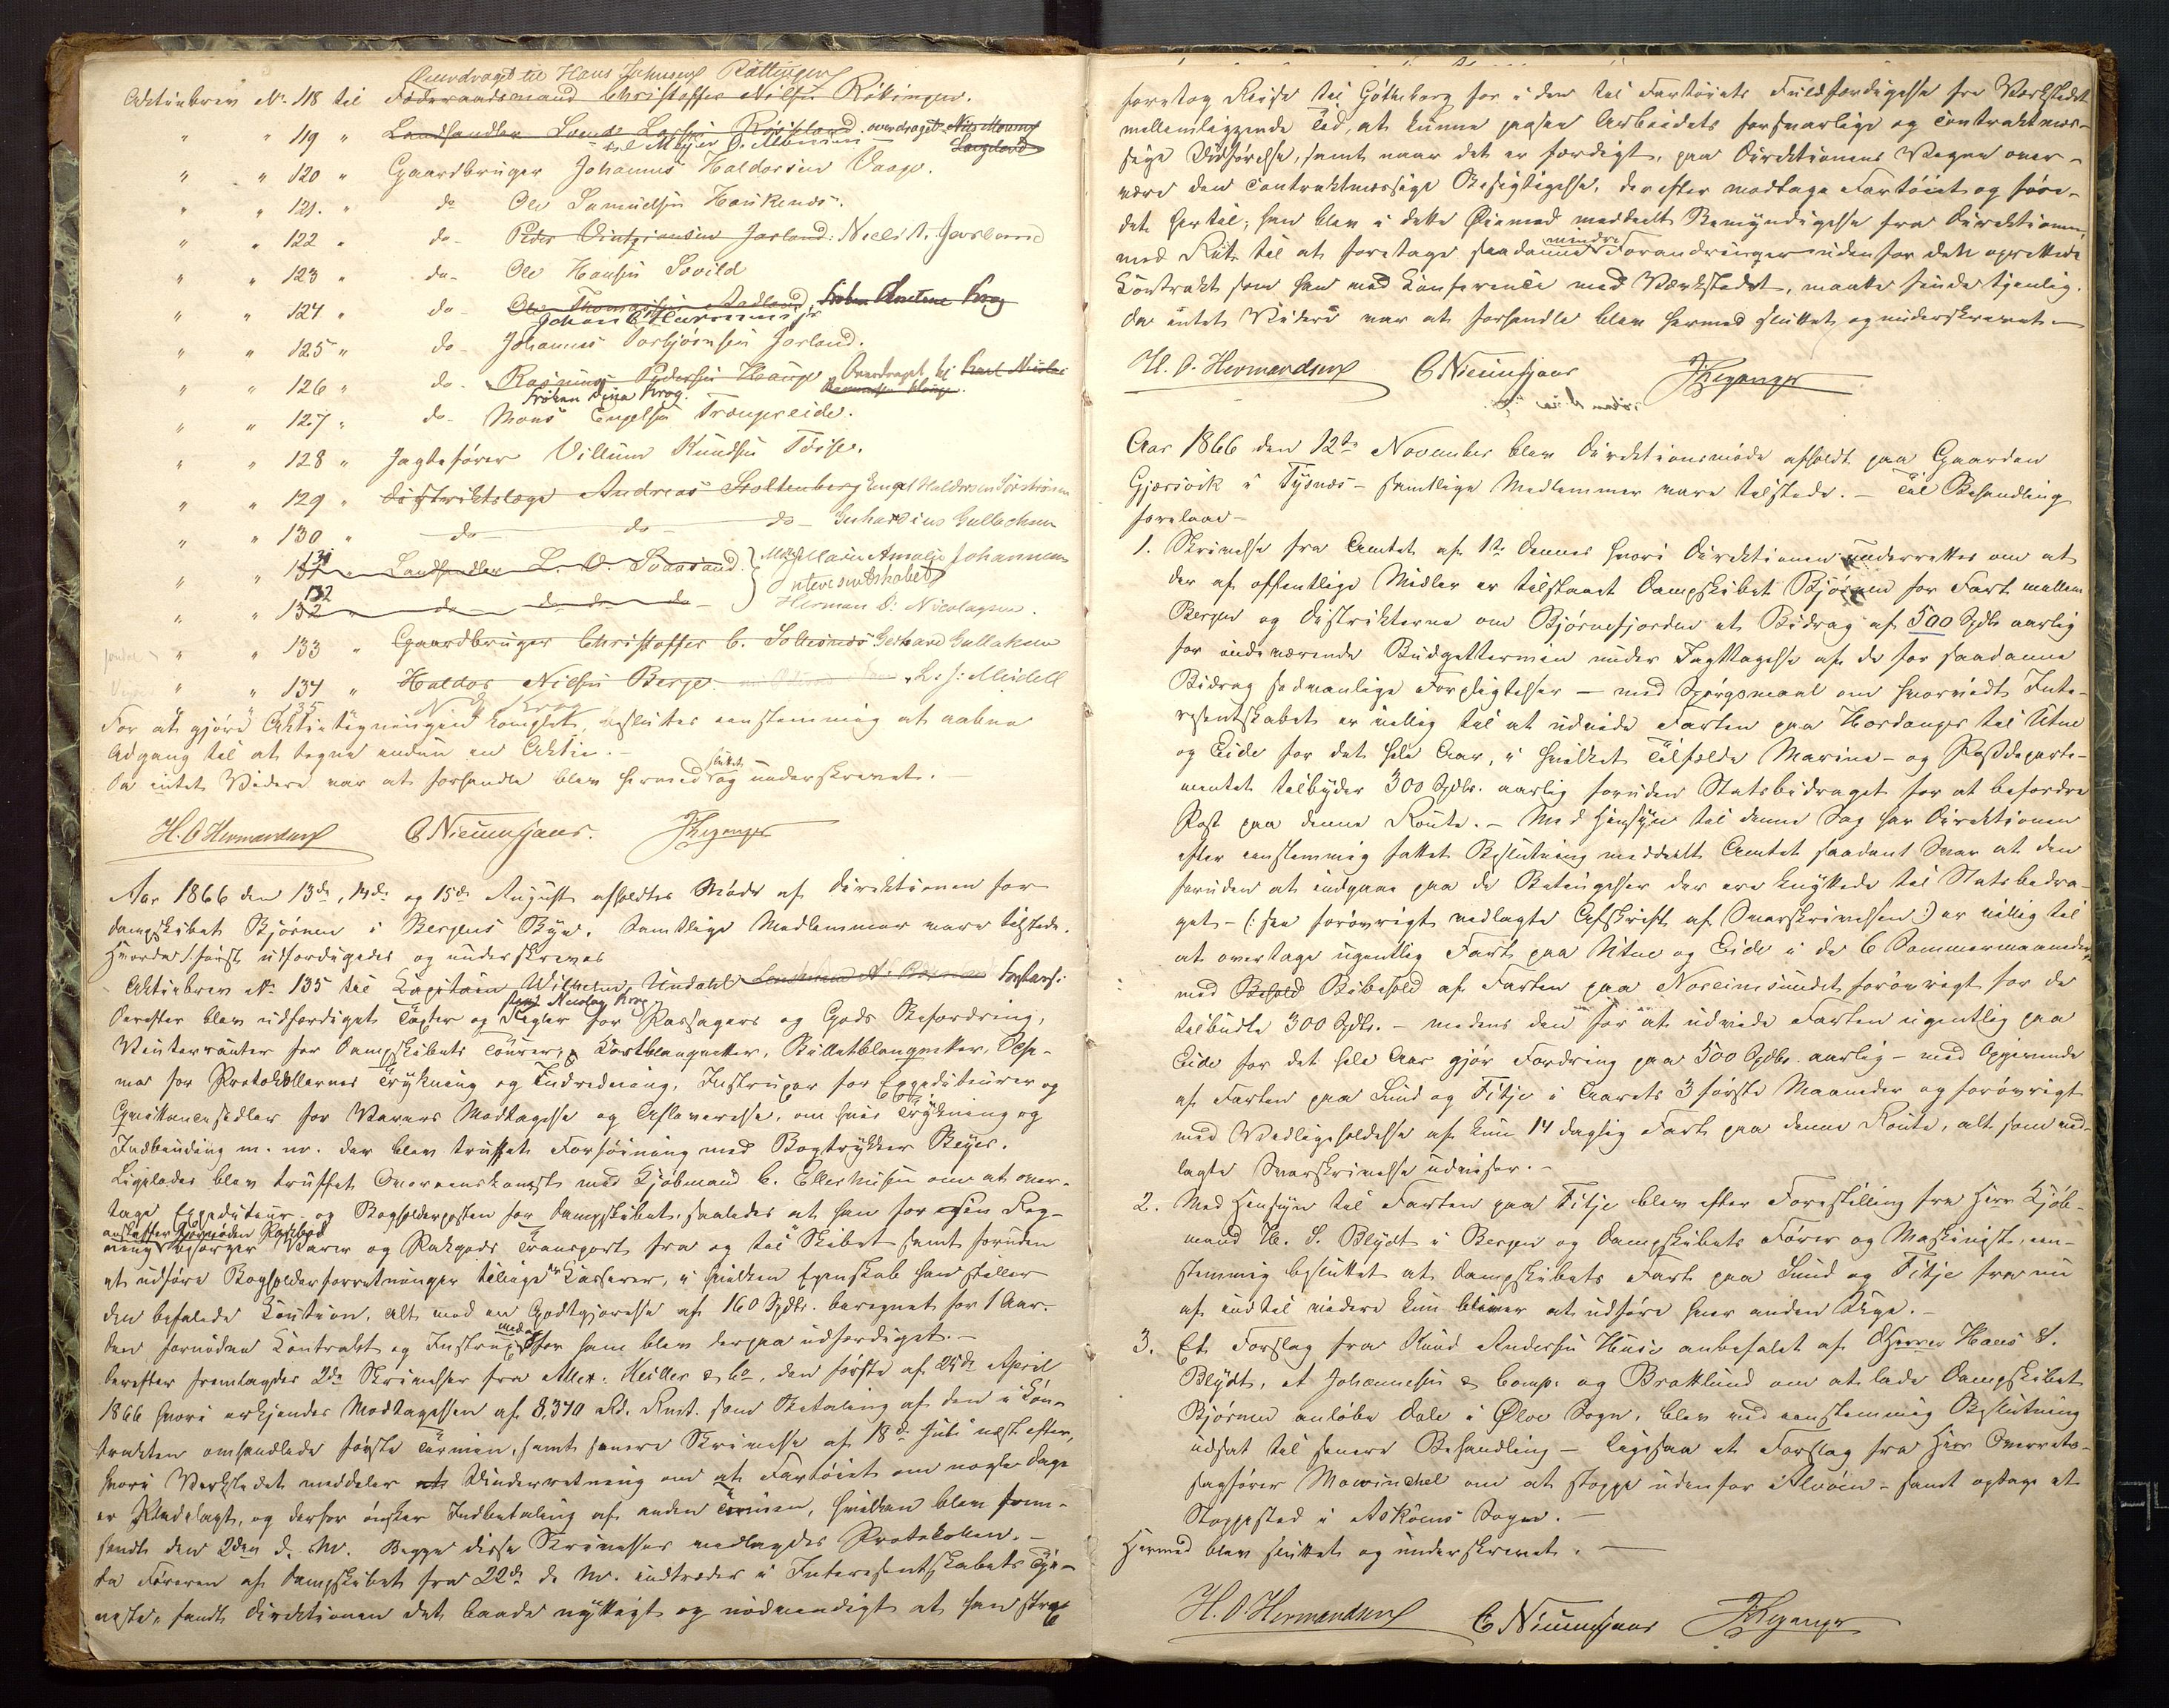 Overdraget til Hans Johnsen Röttingen
Aktiebrev No. 118 til Föderaadsmand Christoffer Nilsen Rötingen.
" " 119 " Landhandler Svend Larsen Röseland. overdraget Nils Monsen
til Meyer J. Monsen Langeland
" " 120 " Gaardbruger Johannes Haldorsen Vaage.
" " 121. " do Ole Samuelsen Haukenæs.
" " 122 " do Peder Vintzjansen Jarland: Niels T. Jarland
" " 123 " do Ole Hansen Sovild
" " 124 " do Ole Thomassen Aadland, Fröken Anetine Krog
Johan C. Hermansen jr
" " 125 " do Johannes Torbjörnsen Jarland.
" " 126 " do Rasmus Pedersen Hauge Overdraget til Karl Nicolai
Fröken Dina Krog. Rasmussen Hauge.
" " 127 " do Mons Engelsen Trængereide.
" " 128 " Jagtefører Villum Knudsen Teise.
" " 129 " Distriktslæge Andreas Stoltenberg Engel Haldorsen Sörströnen
" " 130 " do do do Gerhardius Gullachsen
131
" " 131 " Landhandler L. O. Sovarand. Marie Amalie Johannessen
Interessentskabet
132
" " 132 " do do do do Herman D. Nicolaysen.
" " 133 " Gaardbruger Christoffer C. Solesnæs Gerhard Gullaksen
" " 134 " Haldor Nilsen Berge. L. J. Meidell
135 N. Krog
For at gjöre Aktietegningen komplet, besluttes eenstemmig at aabne
Adgang til at tegne endnu en Aktie.–
Da intet Videre var at forhandle blev hermed sluttet og underskrevet.
H. O Hermandsen C Nieuwejaar. J Keganger
Aar 1866 den 13de, 14de og 15de August afholdtes Möde af Direktionen for
Dampskibet Björnen i Bergens Bye. Samtlige Medlemmer vare tilstede.
Hvorda först udfærdigedes og underskreves
Aktiebrev No. 135 til Kapitain Wilhelm Undahl
Jens Nicolay Krog
Derefter blev udfærdiget Taxter og Regler for Passageers og Gods Befordring,
Vinterrouter for Dampskibets Tourer, Kortblanquetter, Billetblanquetter, Sche-
mar for Protokollernes Trykning og Indredning, Instruxer for Expediteurer og
Qvitteringssedler for Varers Modtagelse og Afleverelse, om hvis Trykning og
Indbinding m. m. der blev truffet Forföining med Bogtrykker Beyer.
Ligeledes blev truffet Overeenskomst med Kjöbmand C. Ellerhusen om at over-
tage Expediteur- og Bogholderposten for Dampskibet, saaledes at han for sin Reg-
anskaffer fornöden Pakbod
ning besörger Varer og Pakgods Transport fra og til Skibet samt foruden
at udföre Bogholderforretninger tillige er Kasserer, i hvilken Egenskab han stiller
den befalede Caution, Alt mod en Godtgjörelse af 160 Spdlr. beregnet for 1 Aar.–
Den fornödne Kontrakt og Instrux med for ham blev derpaa udfærdiget.–
Derefter fremlagdes 2de Skrivelser fra Alex: Keiller & Co, den förste af 25de April
1866 hvori erkjendes Modtagelsen af 8,340 Rd. Rmt. som Betaling af den i Kon-
trakten omhandlede förste Termin, samt senere Skrivelse af 18de Juli næst efter,
hvori Værkstedet meddeler at Underretning om at Fartöiet om nogle Dage
er Kladelagt, og derfor önsker Indbetaling af anden Termin, hvilken blev frem-
sendt den 2den d. M. Begge disse Skrivelser vedlagdes Protokollen.–
Da Föreren af Dampskibet fra 22de d. M. indtræder i Interessentskabets Tje-
neste, fandt Direktionen det baade nyttigt og nödvendigt at han strax
foretog Reise til Götheborg for i den til Fartöiets Fuldfærdigelse fra Værkstedet
mellemliggende Tid, at kunne paasee Arbeidets forsvarlige og Contraktmæs-
sige Udförelse, samt naar det er færdigt, paa Direktionens Vegne over-
være den Contraktmæssige Besigtigelse, derefter modtage Fartöiet og före
det hertil; han blev i dette Øiemed meddeelt Bemyndigelse fra Direktionen,
med Ret til at foretage saadanne mindre Forandringer udenfor den oprettede
Kontrakt som han med Konference med Værkstedet, maatte finde tjenlig.
Da intet Videre var at forhandle blev hermed sluttet og underskrevet.–
H. O. Hermandsen C Nieuwejaar J Keganger
Aar 1866 den 12te November blev Direktionsmöde afholdt paa Gaarden
Gjersvik i Tysnæs – samtlige Medlemmer vare tilstede. – Til Behandling
forelaae –
1. Skrivelse fra Amtet af 1te Dennes hvori Direktionen underrettes om at
der af offentlige Midler er tilstaaet Dampskibet Björnen for Fart mellem
Bergen og Distrikterne om Bjørnefjorden et Bidrag af 500 Spdlr aarlig
for indeværende Budgettermin under Iagttagelse af de for saadanne
Bidrag sædvanlige Forpligtelser – med Spørgsmaal om hvorvidt Inte-
ressentskabet er villig til at udvide Farten paa Hardanger til Utne
og Eide for det hele Aar, i hvilket Tilfælde Marine- og Postdeparte-
mentet tilbyder 300 Spdlr. aarlig foruden Statsbidraget for at befordre
Post paa denne Route. – Med Hensyn til denne Sag har Direktionen
efter eenstemmig fattet Beslutning meddeelt Amtet saadant Svar at den
foruden at indgaae paa de Betingelser der ere knyttede til Statsbidra-
get – (: see forövrigt vedlagte Afskrift af Svarskrivelsen :) er villig til
at overtage ugentlig Fart paa Utne og Eide i de 6 Sommermaaneder,
med Behold Bibehold af Farten paa Noreimsundet forövrigt for de
tilbudte 300 Spdlr. – medens den for at udvide Farten ugentlig paa
Eide for det hele Aar gjör Fordring paa 500 Spdlr. aarlig – med Opgivende
af Farten paa Sund og Fitje i Aarets 3 förste Maaneder og forövrigt
med Vedligeholdelse af kun 14 dagsig Fart paa denne Route, alt som ved-
lagte Svarskrivelse udviser.–
2. Med Hensyn til Farten paa Fitje blev efter Forestilling fra Herr Kjöb-
mand H. S. Blydt i Bergen og Dampskibets Förer og Maskinist, een-
stemmig besluttet at Dampskibets Fart paa Sund og Fitje fra nu
af indtil videre kun bliver at udföre hver anden Uge.–
3. Et Forslag fra Knud Andersen Huse anbefalet af Dherrer Hans S.
Blydt, A Johannesen & Comp. og Brattlund om at lade Dampskibet
Björnen anlöbe Dale i Ølve Sogn, blev ved eenstemmig Beslutning
udsat til senere Behandling – ligesaa et Forslag fra Herr Overrets-
sagförer Mowinckel om at stoppe udenfor Alvöen – samt optage et
Stoppested i Asköens Sogn.–
Hermed blev sluttet og underskrevet.–
H. O. Hermandsen C Nieuwejaar J Keganger